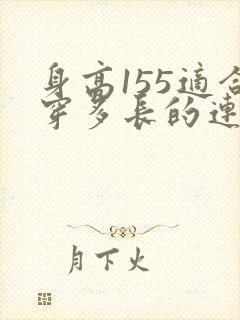 身高155適合
穿多長的連
月下火